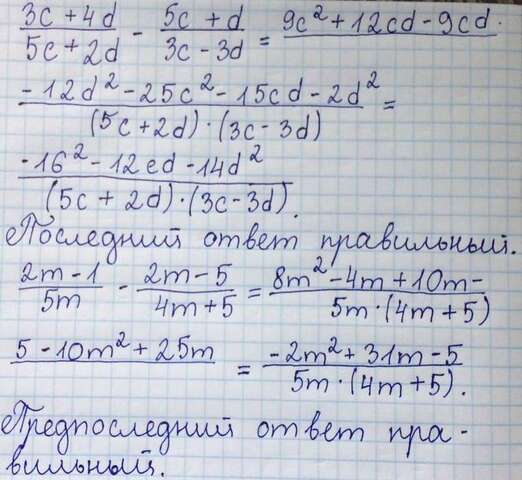 (3c+4d)/(5c+2d) - (5c+d)/(3c-3d) = 9c²+12cd-9cd-
-12d²-25c²-15cd-2d² / (5c+2d)·(3c-3d) =
-16²-12cd-14d² / (5c+2d)·(3c-3d).
Последний ответ правильный.
(2m-1)/5m - (2m-5)/(4m+5) = 8m²-4m+10m- / 5m·(4m+5)
5-10m²+25m = -2m²+31m-5 / 5m·(4m+5).
Предпоследний ответ пра-
вильный.